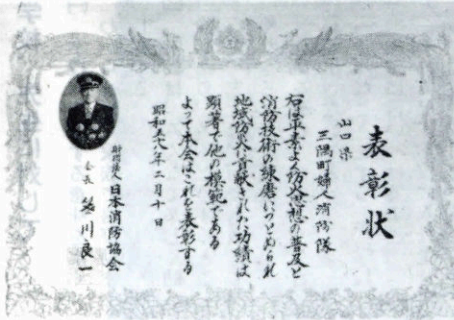 表彰状
山口県
三隅町婦人消防隊
右は平素よく防火思想の普及と
消防技術の練磨につとめられ
地域防災に貢献された功績は
顕著で他の模範である
よって本会はこれを表彰する
昭和五八年二月十日
財団法人 日本消防協会
会長 笹川良一